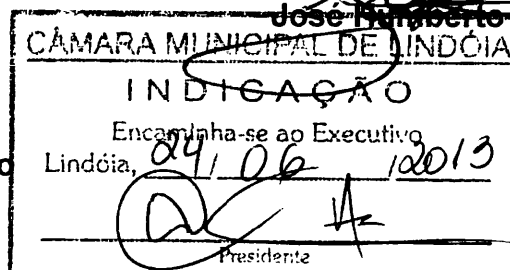 José Humberto
CÂMARA MUNICIPAL DE LINDÓIA
INDICAÇÃO
Encaminha-se ao Executivo
Lindóia, 24/06/2013
Presidente